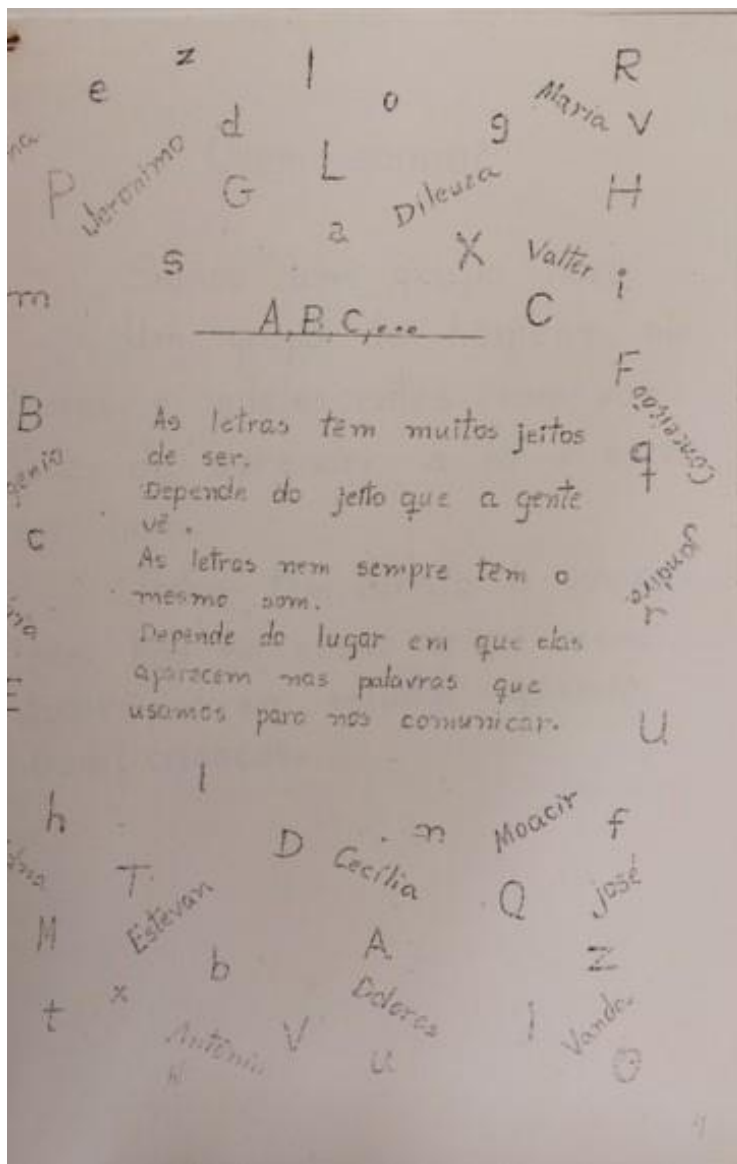 z l R
e o Maria
d g V
P Jeronimo L H
G Dileuza
a X Valter
s i
m C
A, B, C, ...
F
B Conceição
As letras têm muitos jeitos
de ser. q
Depende do jeito que a gente
c vê.
As letras nem sempre têm o
mesmo som.
Depende do lugar em que elas
aparecem nas palavras que
E usamos para nos comunicar.
U
l
h n Moacir f
D Cecília
T José
Estevan Q
M A
b z
x Dolores
t l Vanda
Antônia V
u O